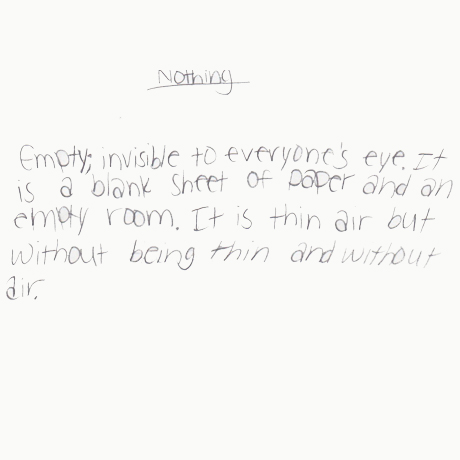 Nothing
Empty; invisible to everyone's eye. It
is a blank sheet of paper and an
empty room. It is thin air but
without being thin and without
air.